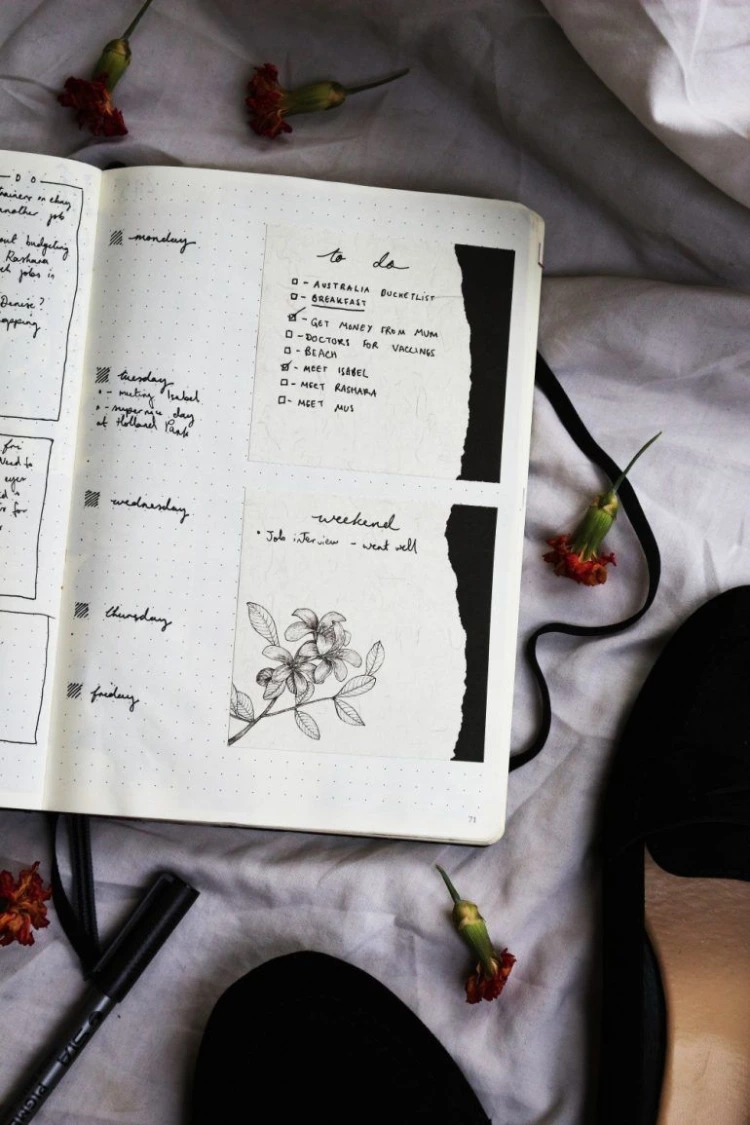 another job
out budgeting
Rashara
jobs in
Denise?
fri
need to
for
monday
tuesday
- meeting Isabel
- super nice day
at Holland Park
wednesday
thursday
friday
to do
- AUSTRALIA BUCKETLIST
- BREAKFAST
- GET MONEY FROM MUM
- DOCTORS FOR VACCINGS
- BEACH
- MEET ISABEL
- MEET RASHARA
- MEET MUS
weekend
• Job interview - went well
71